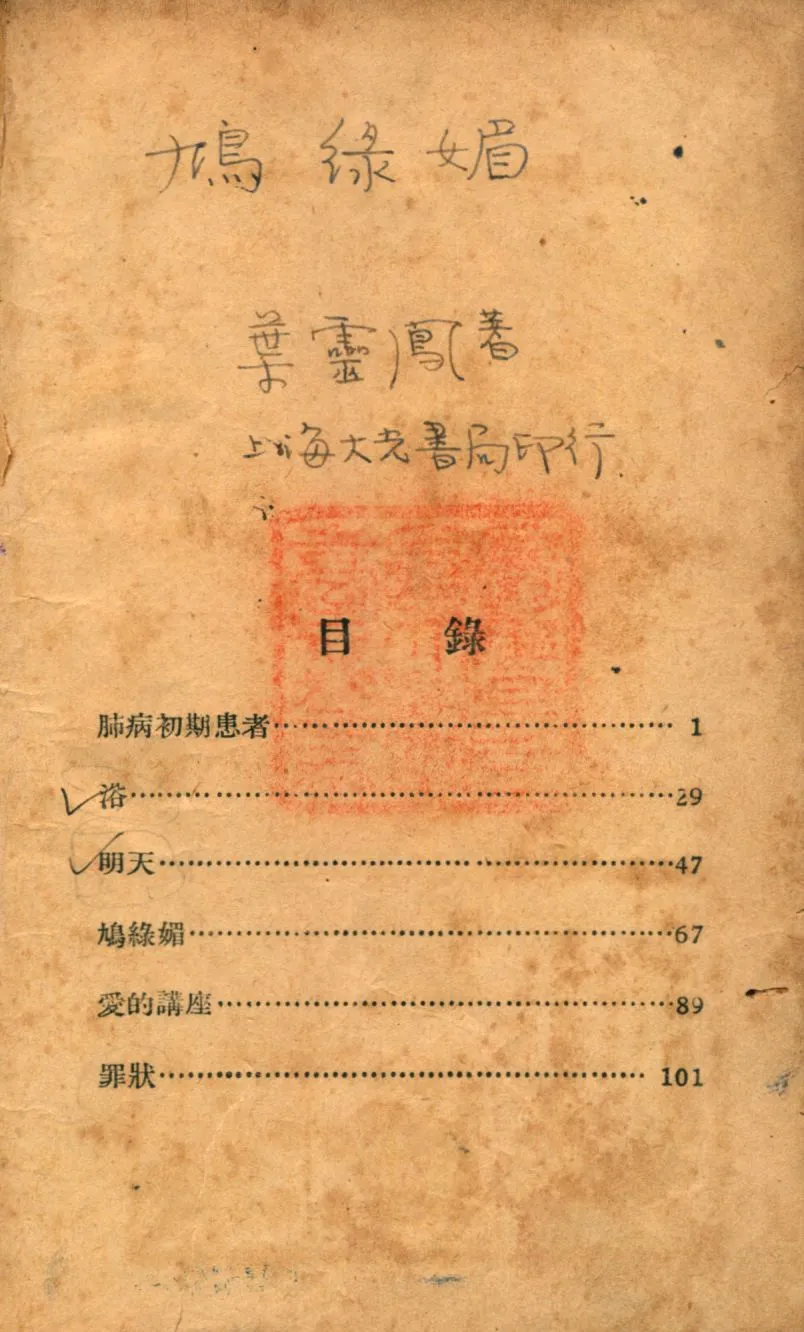 鳩綠媚
葉靈鳳著
上海大光書局印行
目錄
肺病初期患者……………………………………1
浴…………………………………………………29
明天………………………………………………47
鳩綠媚……………………………………………67
愛的講座…………………………………………89
罪狀………………………………………………101